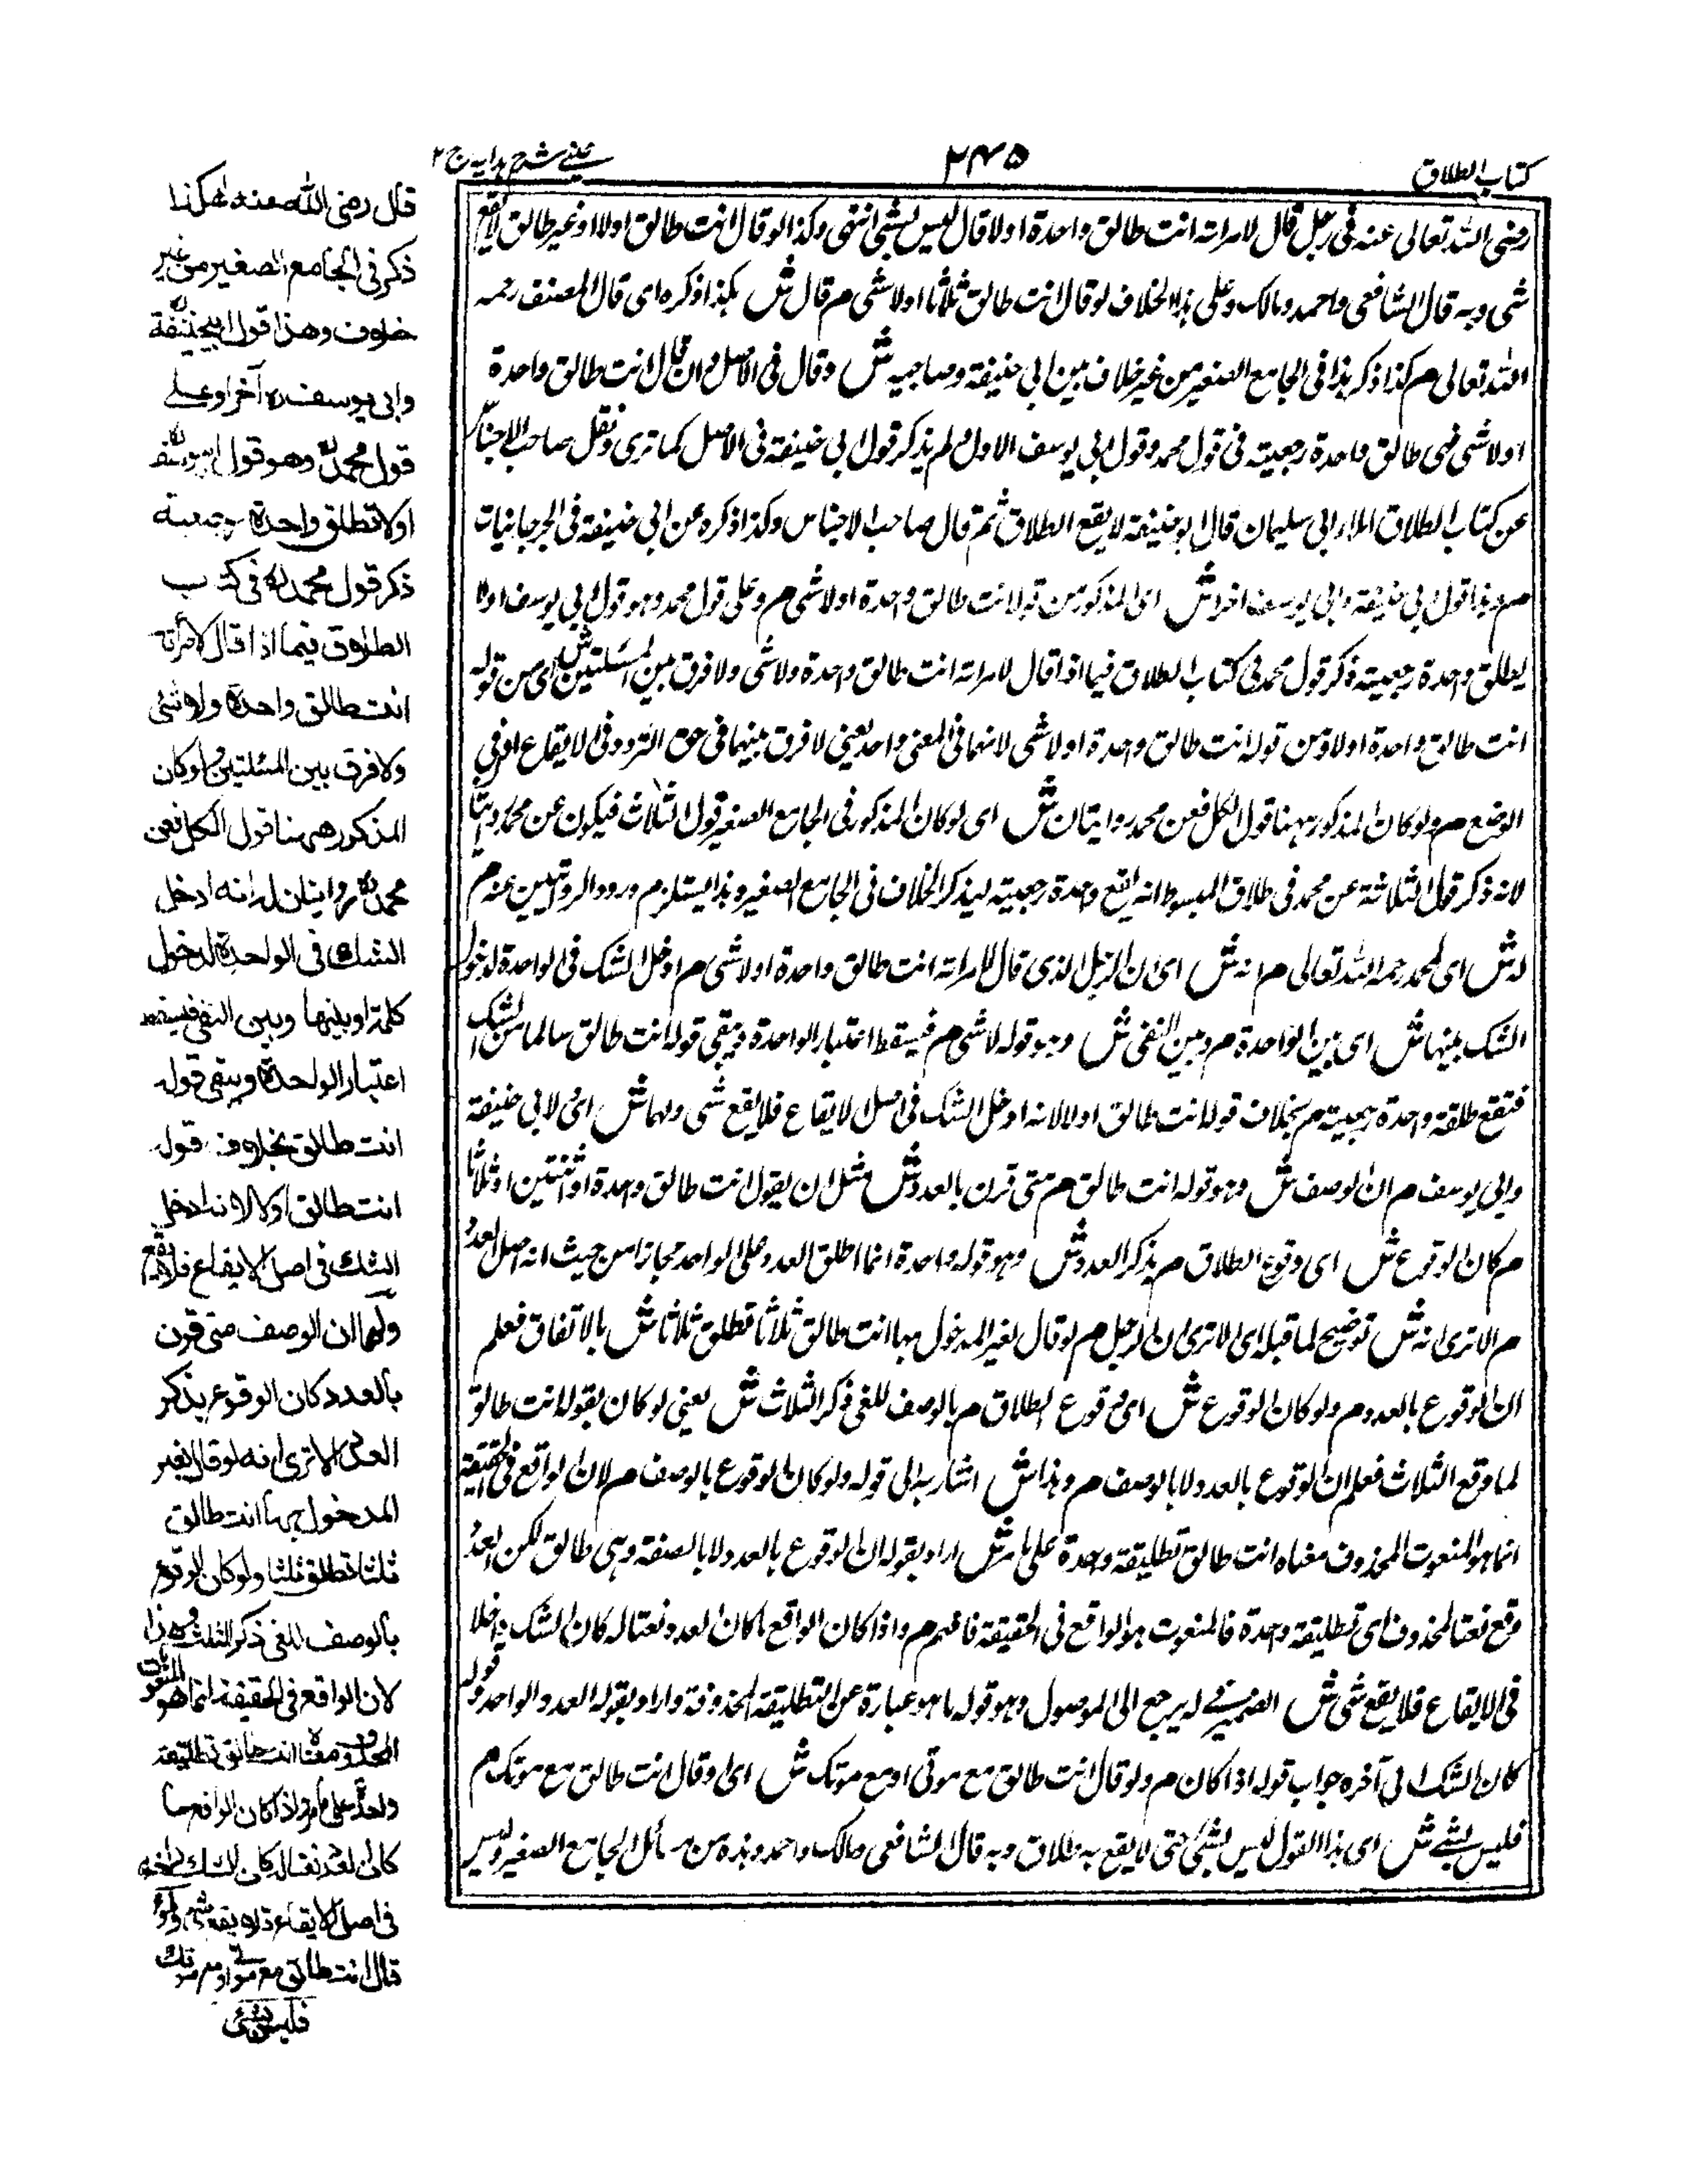 كتاب الطلاق
٢٤٥
عينے شرح ہدایہ ج ٢
رضی اللہ تعالی عنہ فی رجل قال لامراتہ انت طالق واحدة اولا قال لیس بشئ انتھی وکذا لو قال انت طالق اولا او غیر طالق لا یقع
شئ وبہ قال الشافعی واحمد ومالک وعلی ہذا الخلاف لو قال انت طالق ثلاثا اولا شئ م قال ش ہکذا ذکرہ ای قال المصنف رحمہ
اللہ تعالی م کذا ذکر ہذا فی الجامع الصغیر من غیر خلاف بین ابی حنیفة وصاحبیہ ش وقال فی الاصل وان قال انت طالق واحدة
اولا شئ فہی طالق واحدة رجعیة فی قول محمد وقول ابی یوسف الاول ولم یذکر قول ابی حنیفة فی الاصل کما تری ونقل صاحب الاجناس
عن کتاب الطلاق املاء ابی سلیمان قال ابو حنیفة لا یقع الطلاق ثم قال صاحب الاجناس وکذا ذکرہ عن ابی حنیفة فی الجرجانیات
م وہذا قول ابی حنیفة وابی یوسف آخرا ش ای المذکور من قولہ انت طالق واحدة اولا شئ م وعلی قول محمد وہو قول ابی یوسف اولا
یطلق واحدة رجعیة ذکر قول محمد فی کتاب الطلاق فیما اذا قال لامراتہ انت طالق واحدة ولا شئ ولا فرق بین المسئلتین ش ای من قولہ
انت طالق واحدة اولا ومن قولہ انت طالق واحدة اولا شئ لانہما فی المعنی واحد یعنی لا فرق بینہما فی حق التردد فی الایقاع او فی
الوضع م ولو کان المذکور ہہنا قول الکل فعن محمد روایتان ش ای لو کان المذکور فی الجامع الصغیر قول الثلاث فیکون عن محمد روایتان
لانہ ذکر قول الثلاثة عن محمد فی طلاق المبسوط انہ یقع واحدة رجعیة لیذکر الخلاف فی الجامع الصغیر وہذا یستلزم ورود الروایتین عنہ م
لہ ش ای لمحمد رحمہ اللہ تعالی م انہ ش ای ان الرجل الذی قال لامراتہ انت طالق واحدة اولا شئ م ادخل الشک فی الواحدة لدخول
الشک بینہا ش ای بین الواحدة م وبین النفی ش وہو قولہ لا شئ م فیسقط اعتبار الواحدة ویبقی قولہ انت طالق سالما من الشک
فتقع طلقة واحدة رجعیة م بخلاف قولہ انت طالق اولا لانہ ادخل الشک فی اصل الایقاع فلا یقع شئ ولہما ش ای لابی حنیفة
وابی یوسف م ان الوصف ش وہو قولہ انت طالق م متی قرن بالعدد ش مثل ان یقول انت طالق واحدة او ثنتین او ثلاثا
م کان الوقوع ش ای وقوع الطلاق م بذکر العدد ش وہو قولہ واحدة انما اطلق العدد علی الواحد مجازا من حیث انہ اصل العدد
م الا تری انہ ش توضیح لما قبلہ ای الا تری ان الرجل م لو قال لغیر المدخول بہا انت طالق ثلاثا تطلق ثلاثا ش بالاتفاق فعلم
ان الوقوع بالعدد م ولو کان الوقوع ش ای وقوع الطلاق م بالوصف للغی ذکر الثلاث ش یعنی لو کان بقولہ انت طالق
لما وقع الثلاث فعلم ان الوقوع بالعدد لا بالوصف م وہذا ش اشار بہ الی قولہ ولو کان الوقوع بالوصف م لان الواقع فی الحقیقة
انما ہو المنعوت المحذوف معناہ انت طالق تطلیقة واحدة علی ما مر ش اراد بقولہ ان الوقوع بالعدد لا بالصفة وہی طالق لکن العدد
وقع نعتا لمحذوف ای تطلیقة واحدة فالمنعوت ہو الواقع فی الحقیقة فافہم م واذا کان الواقع ما کان العدد نعتا لہ کان الشک داخلا
فی الایقاع فلا یقع شئ ش الضمیر فے لہ یرجع الی الموصول وہو قولہ ما ہو عبارة عن التطلیقة المحذوفة واراد بقولہ العدد الواحد وقولہ
کان الشک الی آخرہ جواب قولہ اذا کان م ولو قال انت طالق مع موتی او مع موتک ش ای او قال انت طالق مع موتک م
فلیس بشئے ش ای ہذا القول لیس بشئ حتی لا یقع بہ طلاق وبہ قال الشافعی ومالک واحمد وہذہ من مسائل الجامع الصغیر ولیس
قال رضی الله عنه هكذا
ذكر فی الجامع الصغیر من غیر
خلاف وهذا قول ابی حنیفة
وابی یوسف رہ آخرا وعلے
قول محمد رہ وهو قول ابی یوسف
اولا تطلق واحدة رجعیة
ذكر قول محمد رہ فی كتاب
الطلاق فیما اذا قال لامرأته
انت طالق واحدة ولا شئ
ولا فرق بین المسئلتین ولو كان
المذكور ههنا قول الكل فعن
محمد رہ روایتان له انه ادخل
الشك فی الواحدة لدخول
كلمة او بینها وبین النفی فیسقط
اعتبار الواحدة ویبقی قوله
انت طالق بخلاف قوله
انت طالق اولا لانه ادخل
الشك فی اصل الایقاع فلا یقع
ولهما ان الوصف متی قرن
بالعدد كان الوقوع بذكر
العدد الا تری انه لو قال لغیر
المدخول بها انت طالق
ثلثا تطلق ثلثا ولو كان الوقوع
بالوصف للغی ذكر الثلث وهذا
لان الواقع فی الحقیقة انما هو المنعوت
المحذوف معناه انت طالق تطلیقة
واحدة علی ما مر واذا كان الواقع ما
كان العدد نعتا له كان الشك داخلا
فی اصل الایقاع فلا یقع شئ ولو
قال انت طالق مع موتے او مع موتك
فلیس بشئ